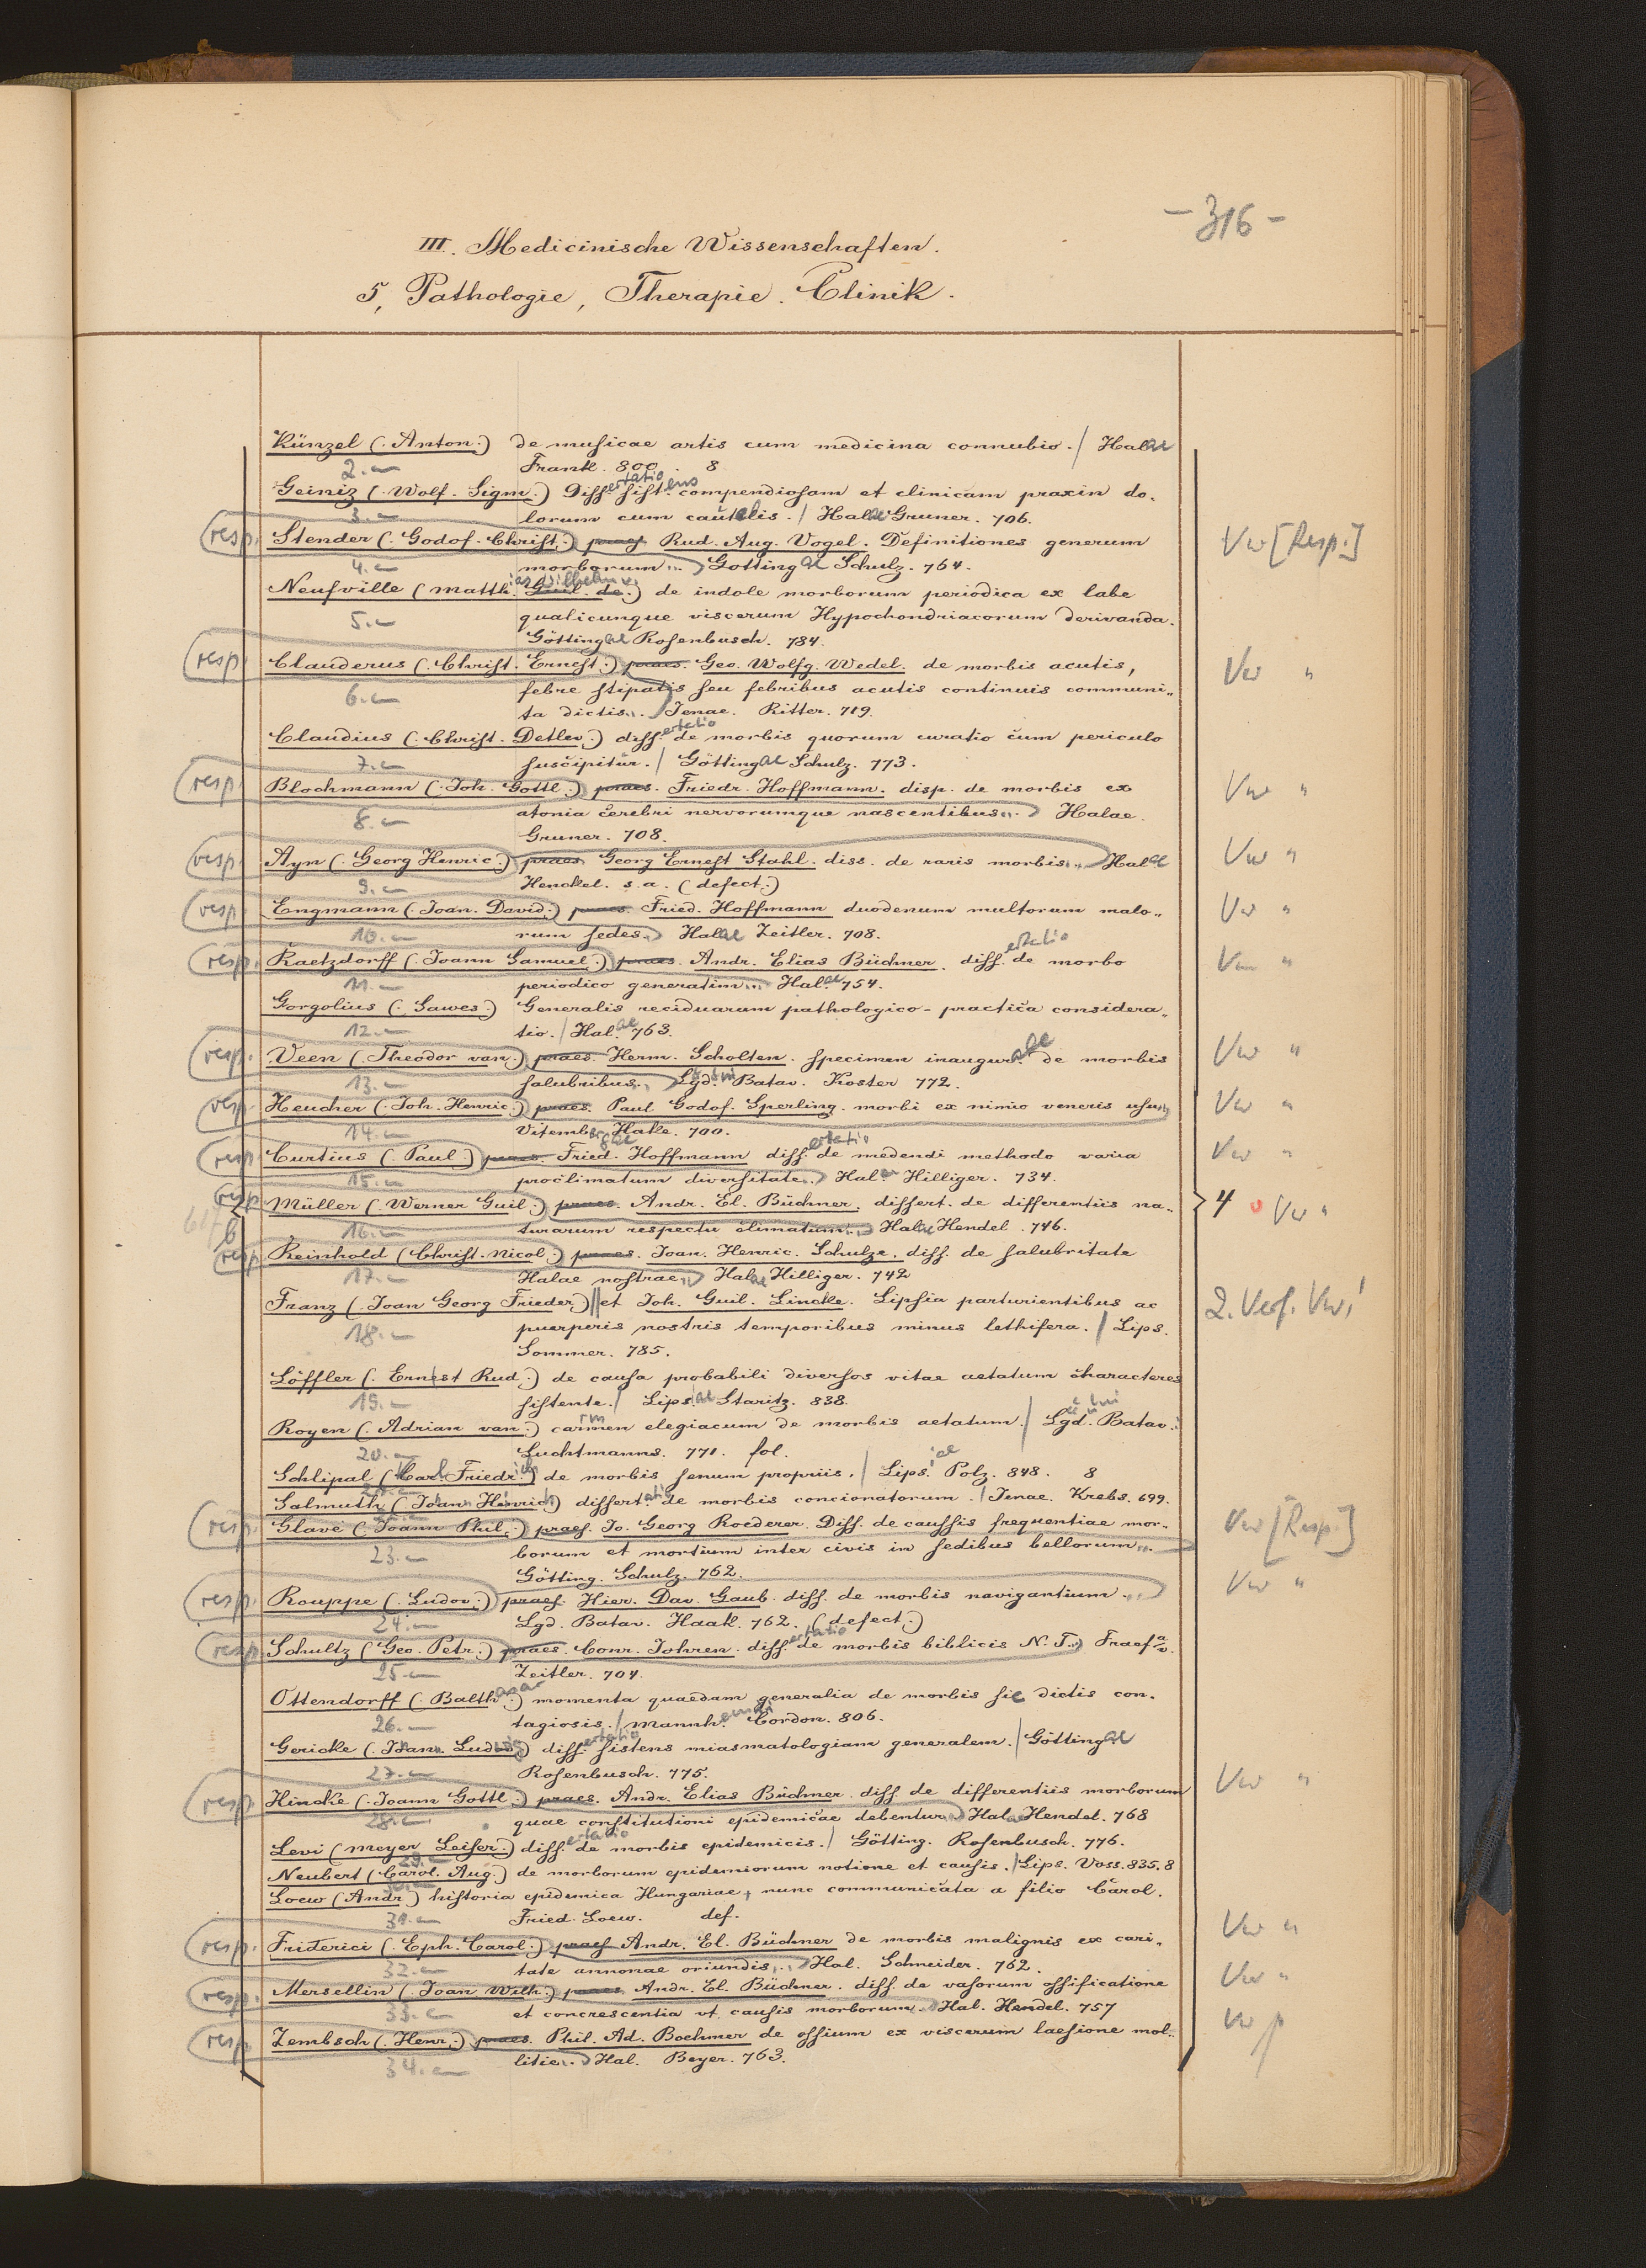 - 316 -
III. Medicinische Wissenschaften.
5, Pathologie, Therapie. Clinik.
Künzel (. Anton.) de musicae artis cum medicina connubio. / Halae
2. Frankl. 800. 8
Geiniz (. Wolf. Sigm.) Dissertatio sistens compendiosam et clinicam praxin do-
3. lorum cum cautelis. / Halae Gruner. 706.
resp. Stender (. Godof. Christ.) praes Rud. Aug. Vogel. Definitiones generum Vw [Resp.]
4. morborum... Gottingae Schulz. 764.
Neufville (Matthias Wilhelm v. Guil. de.) de indole morborum periodica ex labe
5. qualicunque viscerum Hypochondriacorum derivanda.
Göttingae Rosenbusch. 784.
resp. Clauderus (. Christ. Ernest.) praes. Geo. Wolfg. Wedel. de morbis acutis, Vw "
6. febre stipatis seu febribus acutis continuis communi-
ta dictis... Jenae. Ritter. 719.
Claudius (. Christ. Detlev.) dissertatio de morbis quorum curatio cum periculo
7. suscipitur. / Göttingae Schulz. 773.
resp. Blochmann (. Joh. Gottl.) praes. Friedr. Hoffmann. disp. de morbis ex Vw "
8. atonia cerebri nervorumque nascentibus... Halae.
Gruner. 708.
resp. Ayn (. Georg Henric.) praes Georg Ernest Stahl. diss. de raris morbis... Halae Vw "
9. Henckel. s.a. (defect.)
resp. Engmann (. Joan. David.) praes. Fried. Hoffmann duodenum multorum malo- Vw "
10. rum sedes. Halae Zeitler. 708.
resp. Raetzdorff (. Joann Samuel.) praes. Andr. Elias Büchner. dissertatio de morbo Vw "
11. periodico generatim... Halae 754.
Gorgolius (. Sawes.) Generalis reciduarum pathologico-practica considera-
12. tio. / Halae 763.
resp. Veen (. Theodor van.) praes. Herm. Scholten. specimen inaugurale de morbis Vw "
13. salubribus... Lgd. Batav. Koster 772.
resp. Heucher (. Joh. Henric.) praes. Paul Godof. Sperling. morbi ex nimio veneris usu... Vw "
14. Vitembergae Hake. 700.
resp. Curtius (. Paul.) praes. Fried. Hoffmann dissertatio de medendi methodo varia Vw "
15. proclimatum diversitate... Halae Hilliger. 734.
resp Müller (. Werner Guil.) praes. Andr. El. Büchner. dissert. de differentiis na- 4 Vw "
b 16. turarum respectu climatum... Halae Hendel. 746.
resp Reinhold (Christ. Nicol.) praes. Joan. Henric. Schulze. diss. de salubritate
17. Halae nostrae... Halae Hilliger. 742
Franz (. Joan Georg Frieder.) || et Joh. Guil. Lincke. Lipsia parturientibus ac 2. Verf. Vw!
18. puerperis nostris temporibus minus lethifera. / Lips.
Sommer. 785.
Löffler (. Ernest Rud.) de causa probabili diversos vitae aetatum characteres
19. sistente. / Lipsiae Staritz. 838.
Royen (. Adrian van.) carmen elegiacum de morbis aetatum. / Lgd. Batav.
20. Luchtmanns. 771. fol.
Schlipal (Carl Friedrich) de morbis senum propriis. / Lipsiae Polz. 848. 8
Salmuth (Johann Heinrich) dissertatio de morbis concionatorum. / Jenae. Krebs. 699.
resp. Glave (. Joann Phil.) praes. Jo. Georg Roederer. Diss. de caussis frequentiae mor- Vw [Resp.]
23. borum et mortium inter civis in sedibus bellorum...
Götting. Schulz. 762.
resp. Rouppe (. Ludov.) praes. Hier. Dav. Gaub. diss. de morbis navigantium... Vw "
24. Lgd. Batav. Haak. 762. (defect.)
resp Schultz (Geo. Petr.) praes. Conr. Johren. dissertatio de morbis biblicis N. T.. Fraef a/v.
25. Zeitler. 704.
Ottendorff (. Balthasar.) momenta quaedam generalia de morbis sic dictis con-
26. tagiosis. / Mannh. Cordon. 806.
Gericke (. Johann Ludwig) dissertatio sistens miasmatologiam generalem. / Göttingae
27. Rosenbusch. 775.
resp Hincke (. Joann Gottl.) praes. Andr. Elias Büchner. diss. de differentiis morborum Vw "
28. quae constitutioni epidemicae debentur... Halae Hendel. 768
Levi (Meyer Leiser.) dissertatio de morbis epidemicis. / Götting. Rosenbusch. 776.
Neubert (Carol. Aug.) de morborum epidemiorum notione et causis. / Lips. Voss. 835. 8
Loew (Andr.) historia epidemica Hungariae, nunc communicata a filio Carol.
31. Fried. Loew. def.
resp. Friderici (. Eph. Carol.) praes Andr. El. Büchner de morbis malignis ex cari- Vw "
32. tate annonae oriundis... Hal. Schneider. 762.
resp. Mersellin (. Joan Wilh.) praes. Andr. El. Büchner. diss. de vasorum ossificatione Vw "
33. et concrescentia ut causis morborum. Hal. Hendel. 757
resp. Zembsch (. Henr.) praes. Phil. Ad. Boehmer de ossium ex viscerum laesione mol- Vw
34. litie... Hal. Beyer. 763.